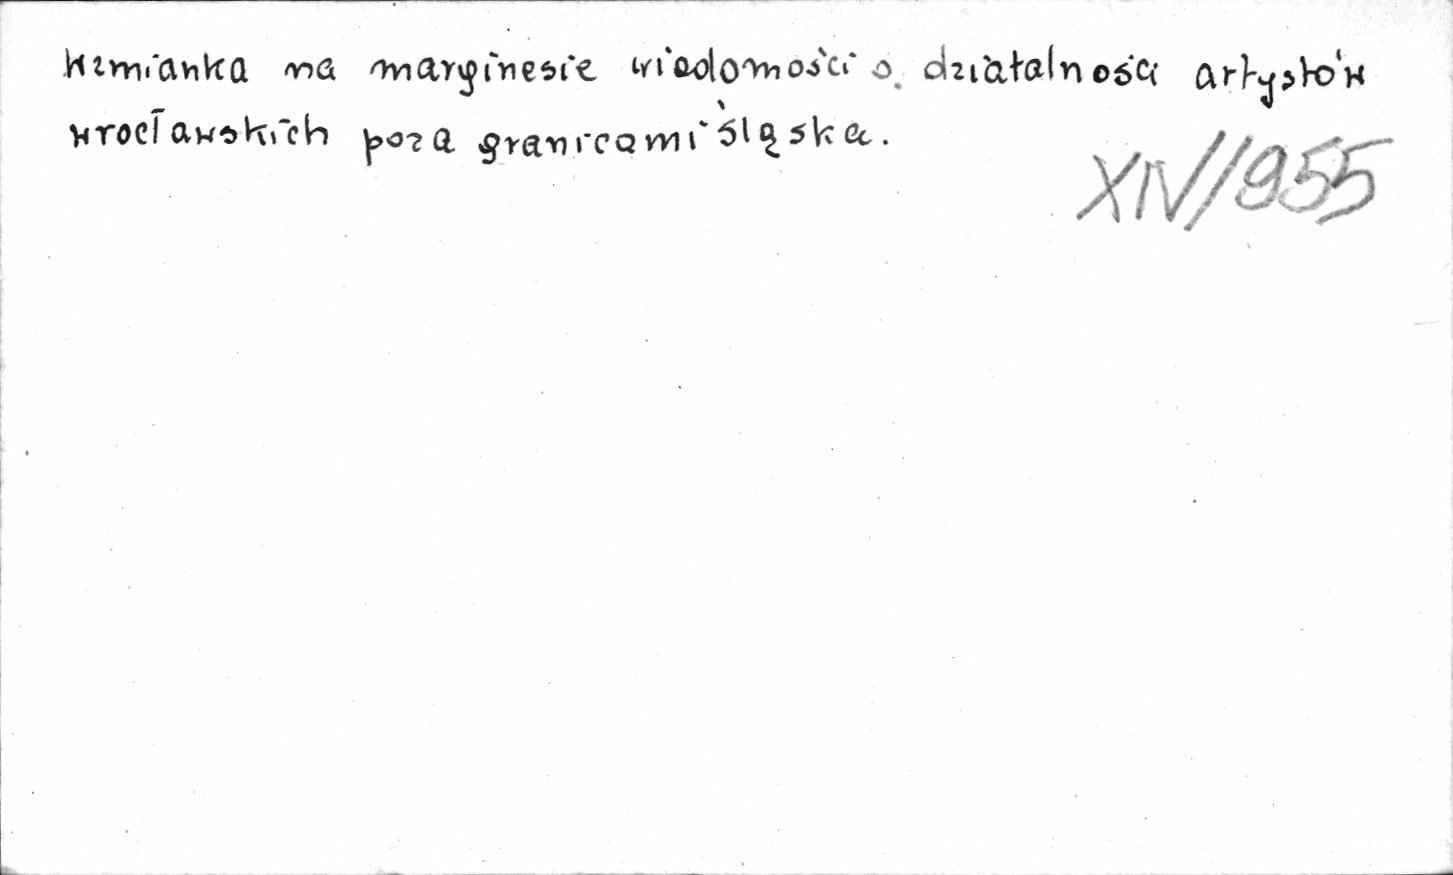 Wzmianka na marginesie wiadomości o działalności artystów
wrocławskich poza granicami Śląska.
XIV/955